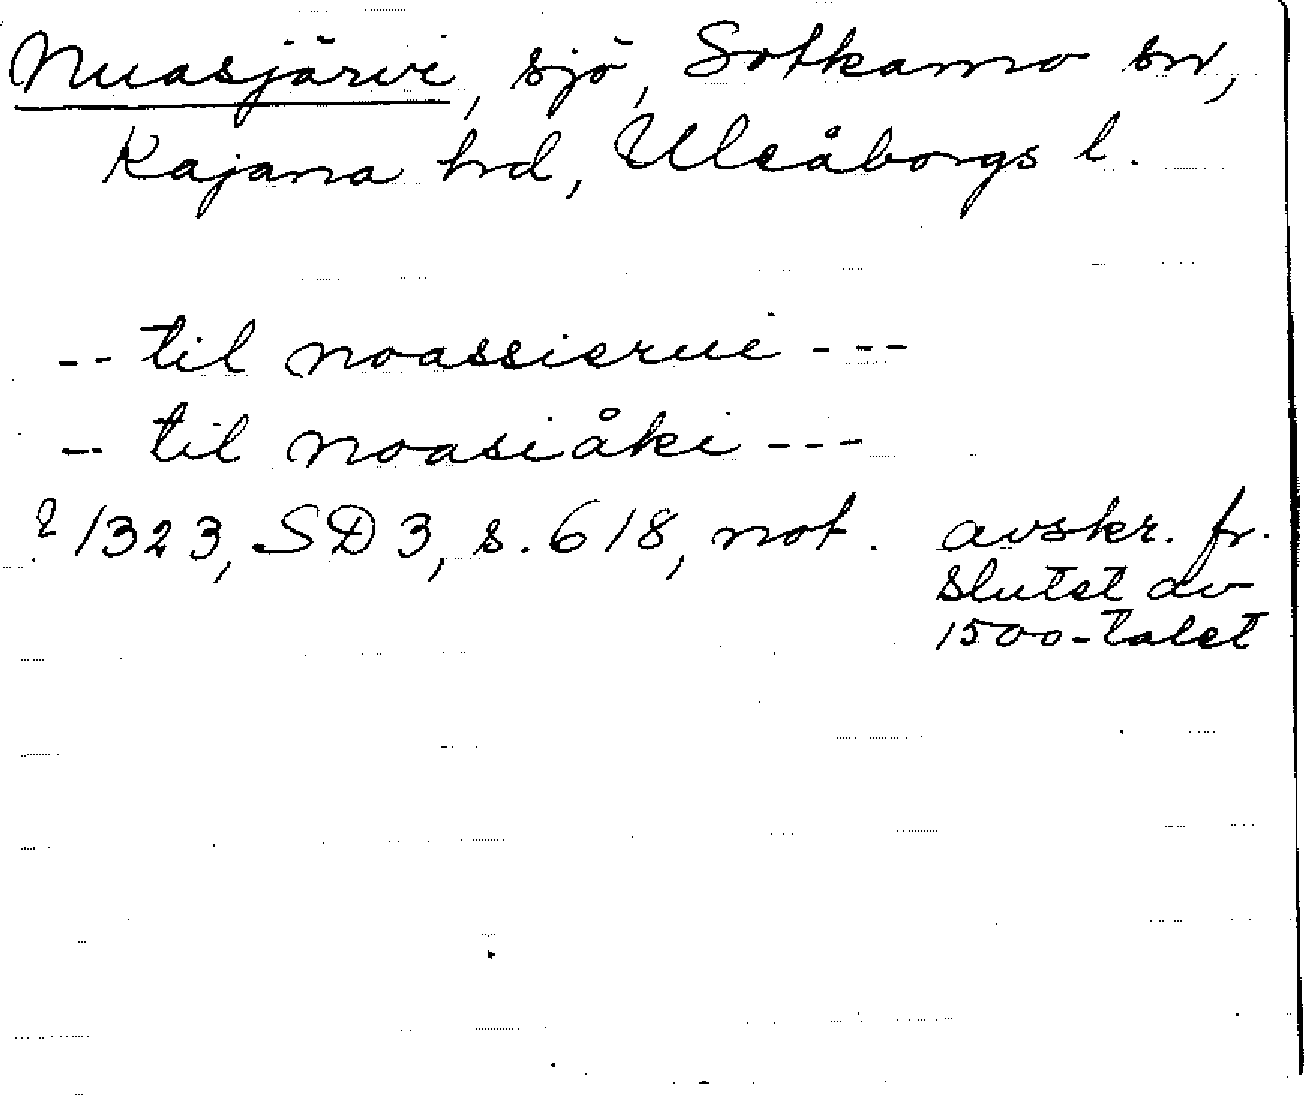 Nuasjärvi, sjö, Sotkamo sn,
Kajana hd, Uleåborgs l.
-- til noassierui ---
-- til noasiåki ---
? 1323, SD 3, s. 618, not. avskr. fr.
slutet av
1500-talet